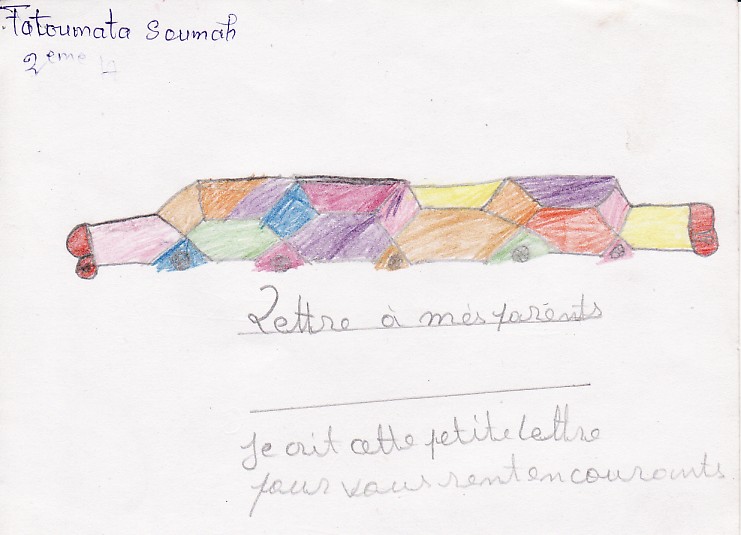 Fatoumata Soumah
2eme 4
Lettre à més parénts
Je crit cette petite lettre
pour vous rent en couronts